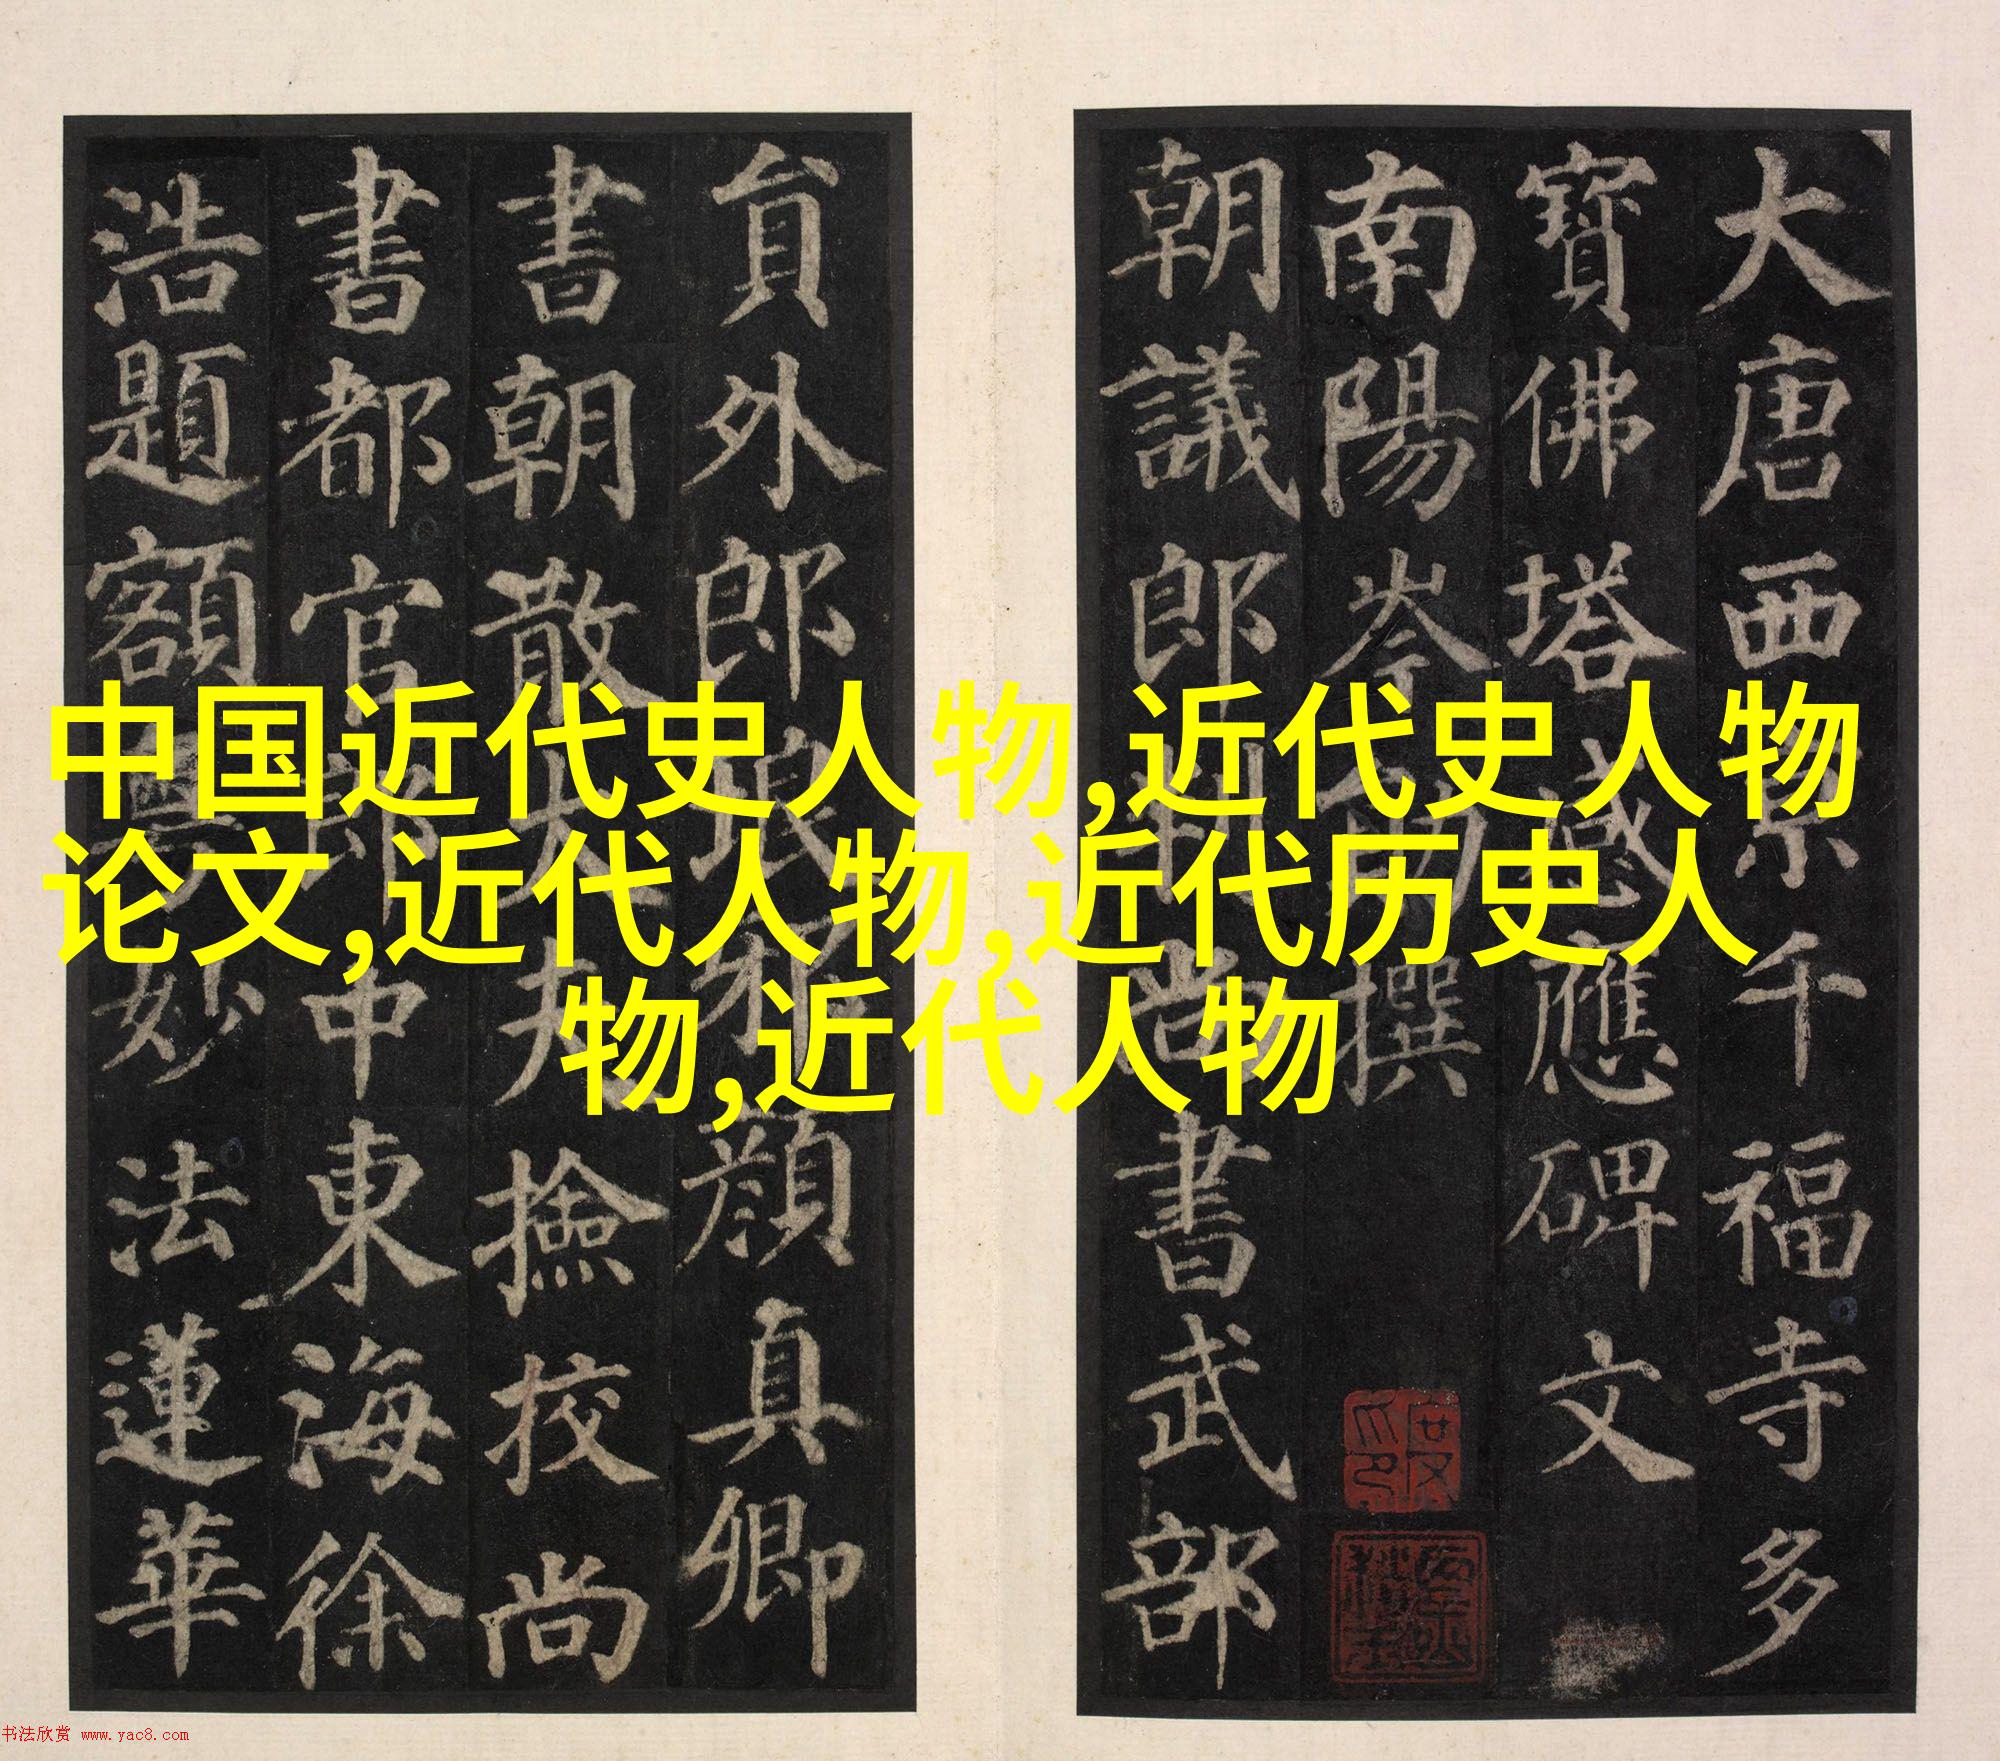 大唐西京千福寺多
寶佛塔感應碑文
南陽岑勛撰
朝議郎判尚書武部
貟外郎琅邪顏真卿
書朝散大夫撿挍尚
書都官郎中東海徐
浩題額粵妙法蓮華
中国近代史人物,近代史人物
论文,近代人物,近代历史人
物,近代人物
书法欣赏 www.yac8.com